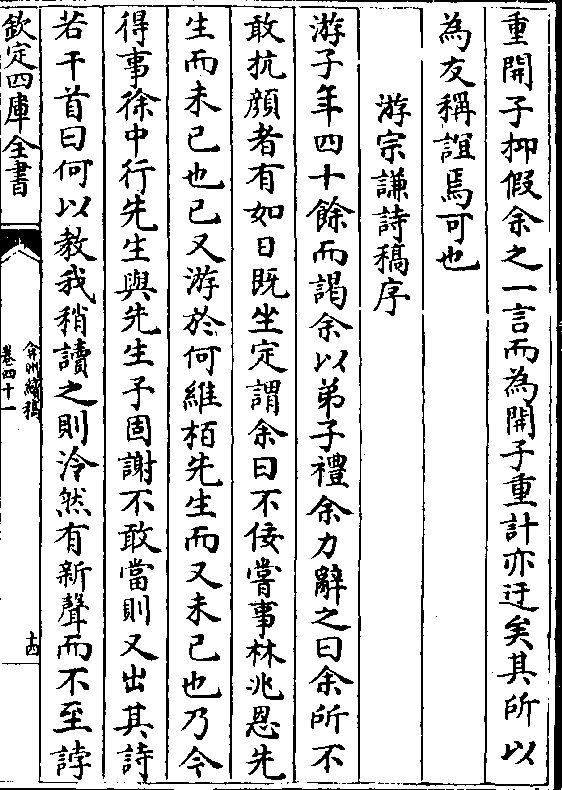 重開子抑假余之一言而為開子重計亦迂矣其所以
為友稱誼焉可也
游宗謙詩稿序
游子年四十餘而謁余以弟子禮余力辭之曰余所不
敢抗顔者有如日既坐定謂余曰不佞嘗事林兆恩先
生而未己也已又游於何維栢先生而又未己也乃今
得事徐中行先生與先生予固謝不敢當則又出其詩
若干首曰何以教我稍讀之則泠然有新聲而不至誖
欽定四庫全書
弇州續稿
卷四十一
十四